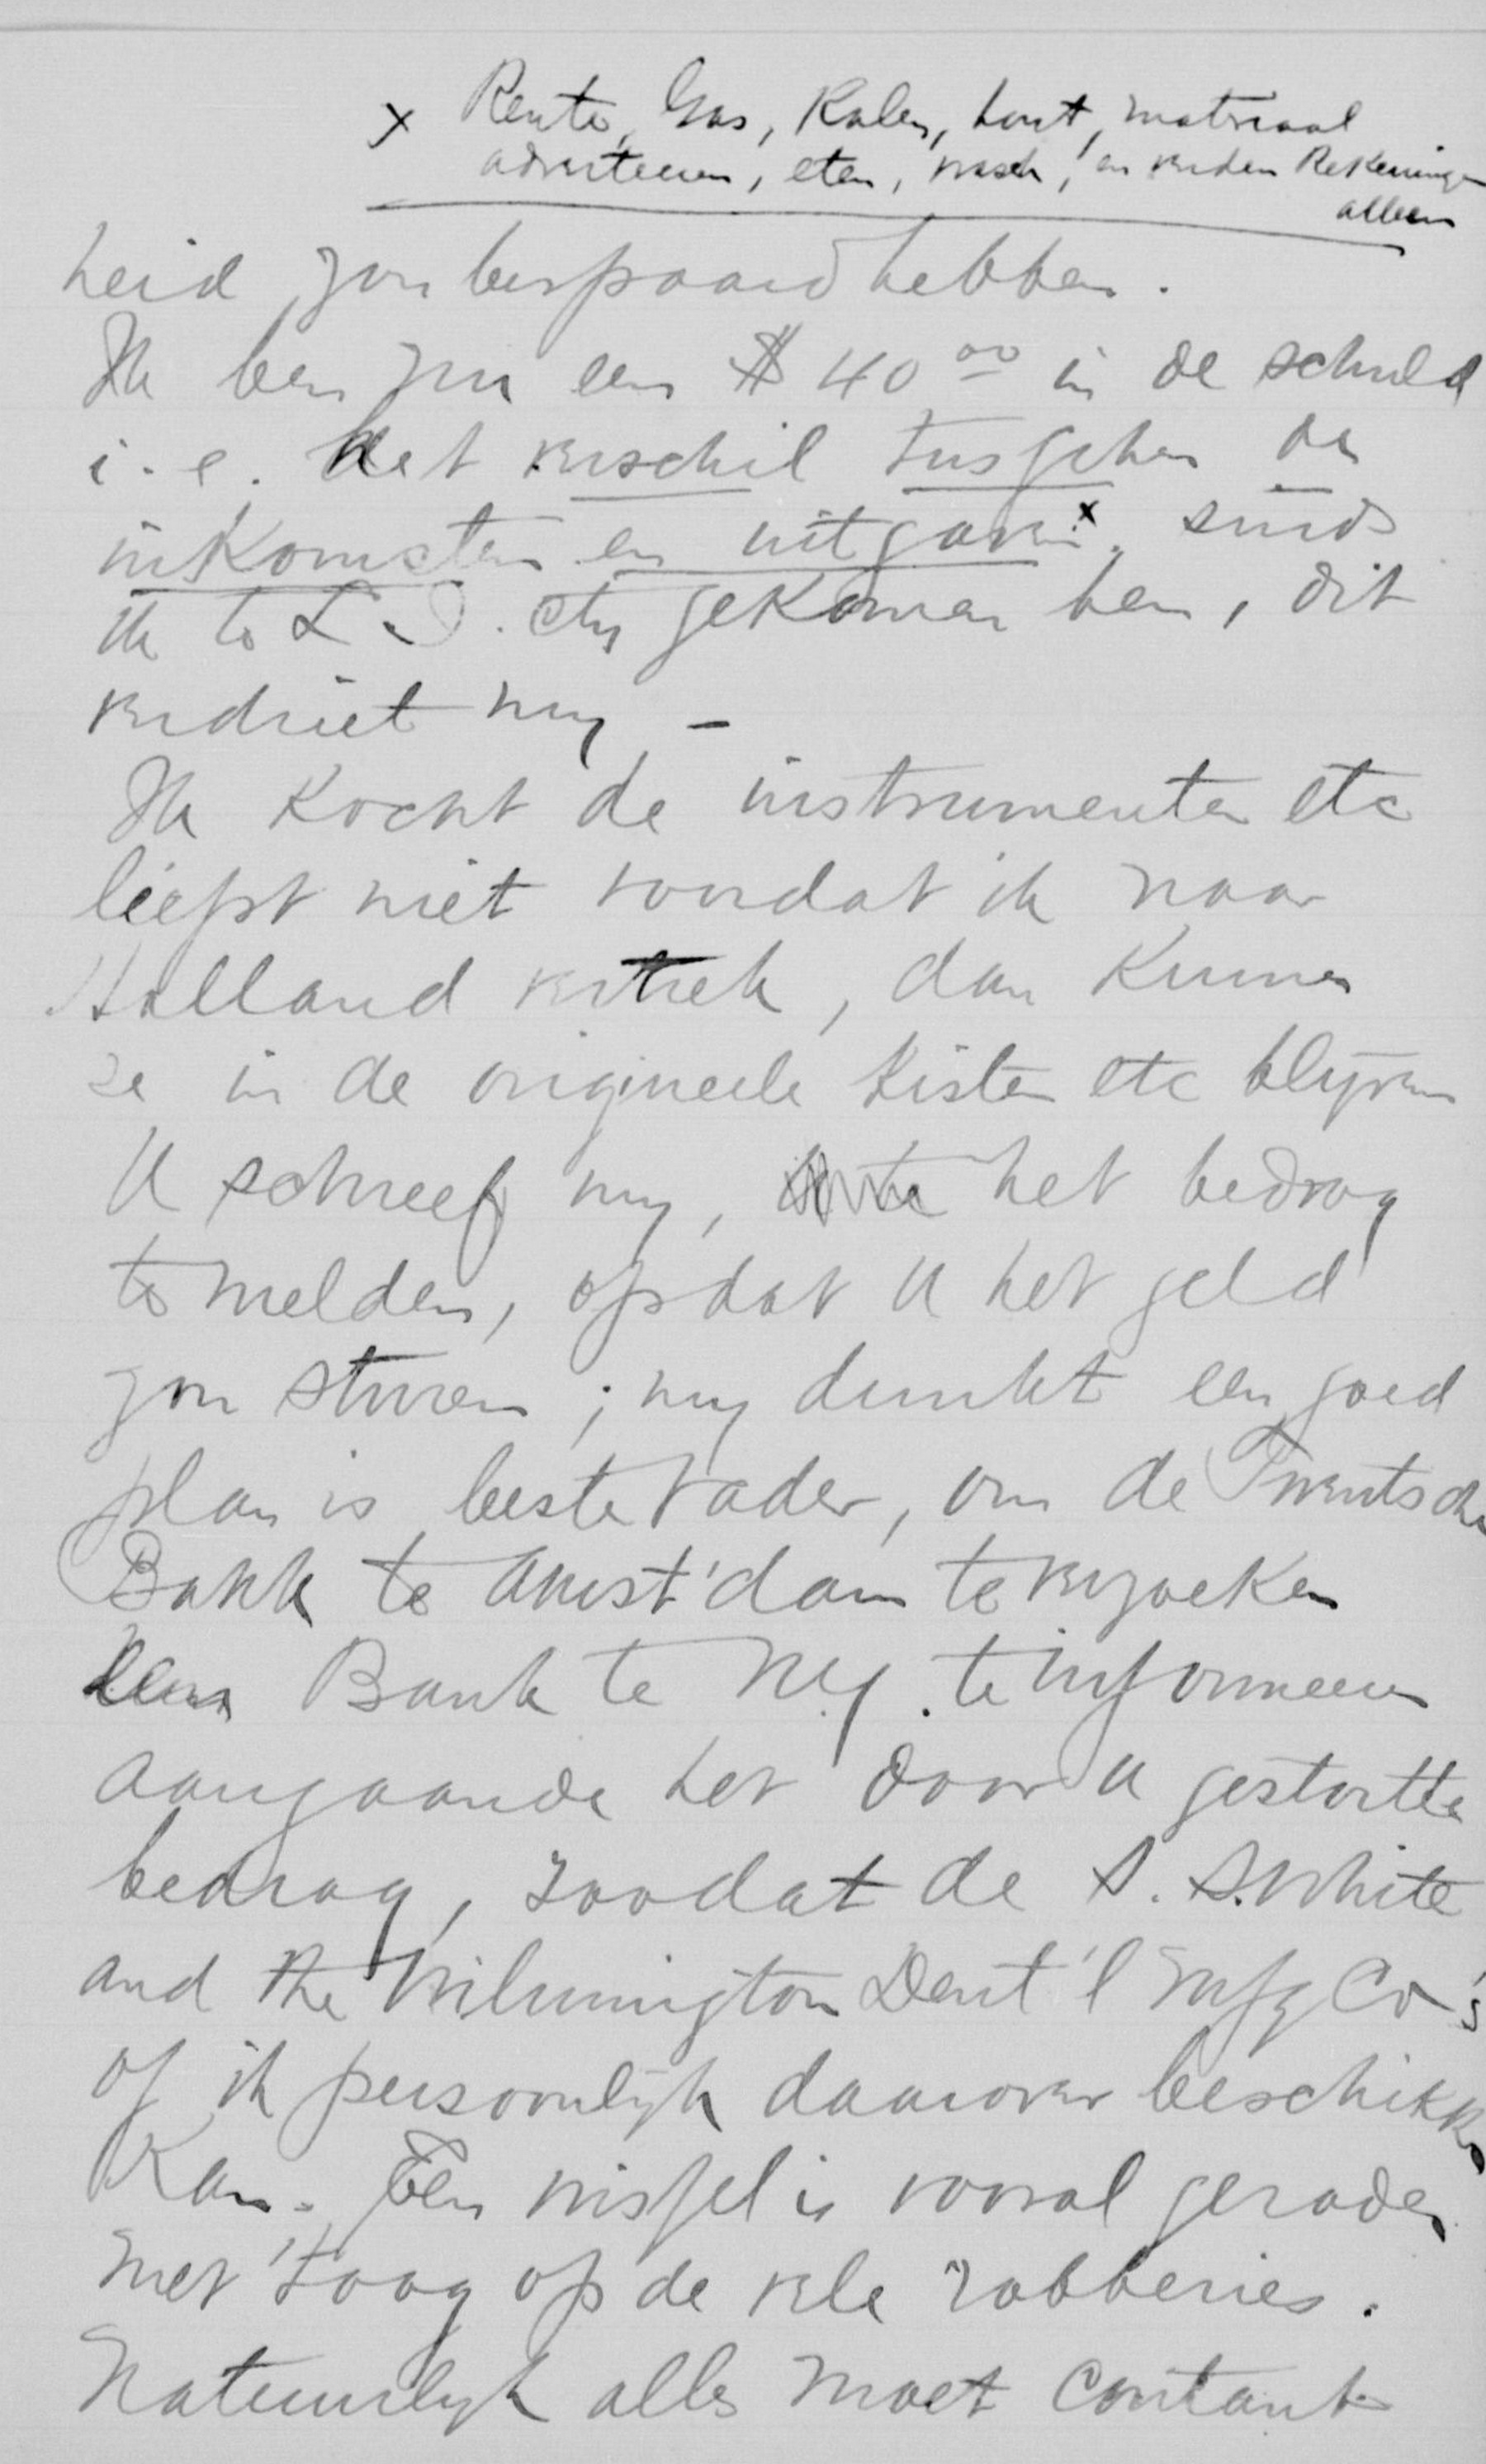 x Rente, Gas, Kolen, hout, materiaal
adverteeren, eten, wasch, en verdere Rekeningen
alleen
heid zou bespaard hebben.
Ik ben nu een $ 40 00 in de schuld
i.e. het verschil tusschen de
inkomsten en uitgaven x. sinds
ik te L. I. City gekomen ben, dit
verdriet my –
Ik kocht de instrumenten etc
liefst niet voordat ik naar
Holland vertrek, dan kunnen
ze in de origineele kisten etc blyven
U schreef my, het bedrag
te melden, opdat U het geld
zou sturen; my dunkt een goed
plan is beste Vader, om de Twentsche
Bank te Amst'dam te verzoeken
een Bank te N.Y. te informeeren
aangaande het door U gestortte
bedrag, zoodat de S. S. White
and the Wilmington Dent'l Mfg Co's
of ik persoonlyk daarover beschikken
kan. Een wissel is vooral geraden
met 't oog op de vele robberies.
Natuurlyk alles moet Contant